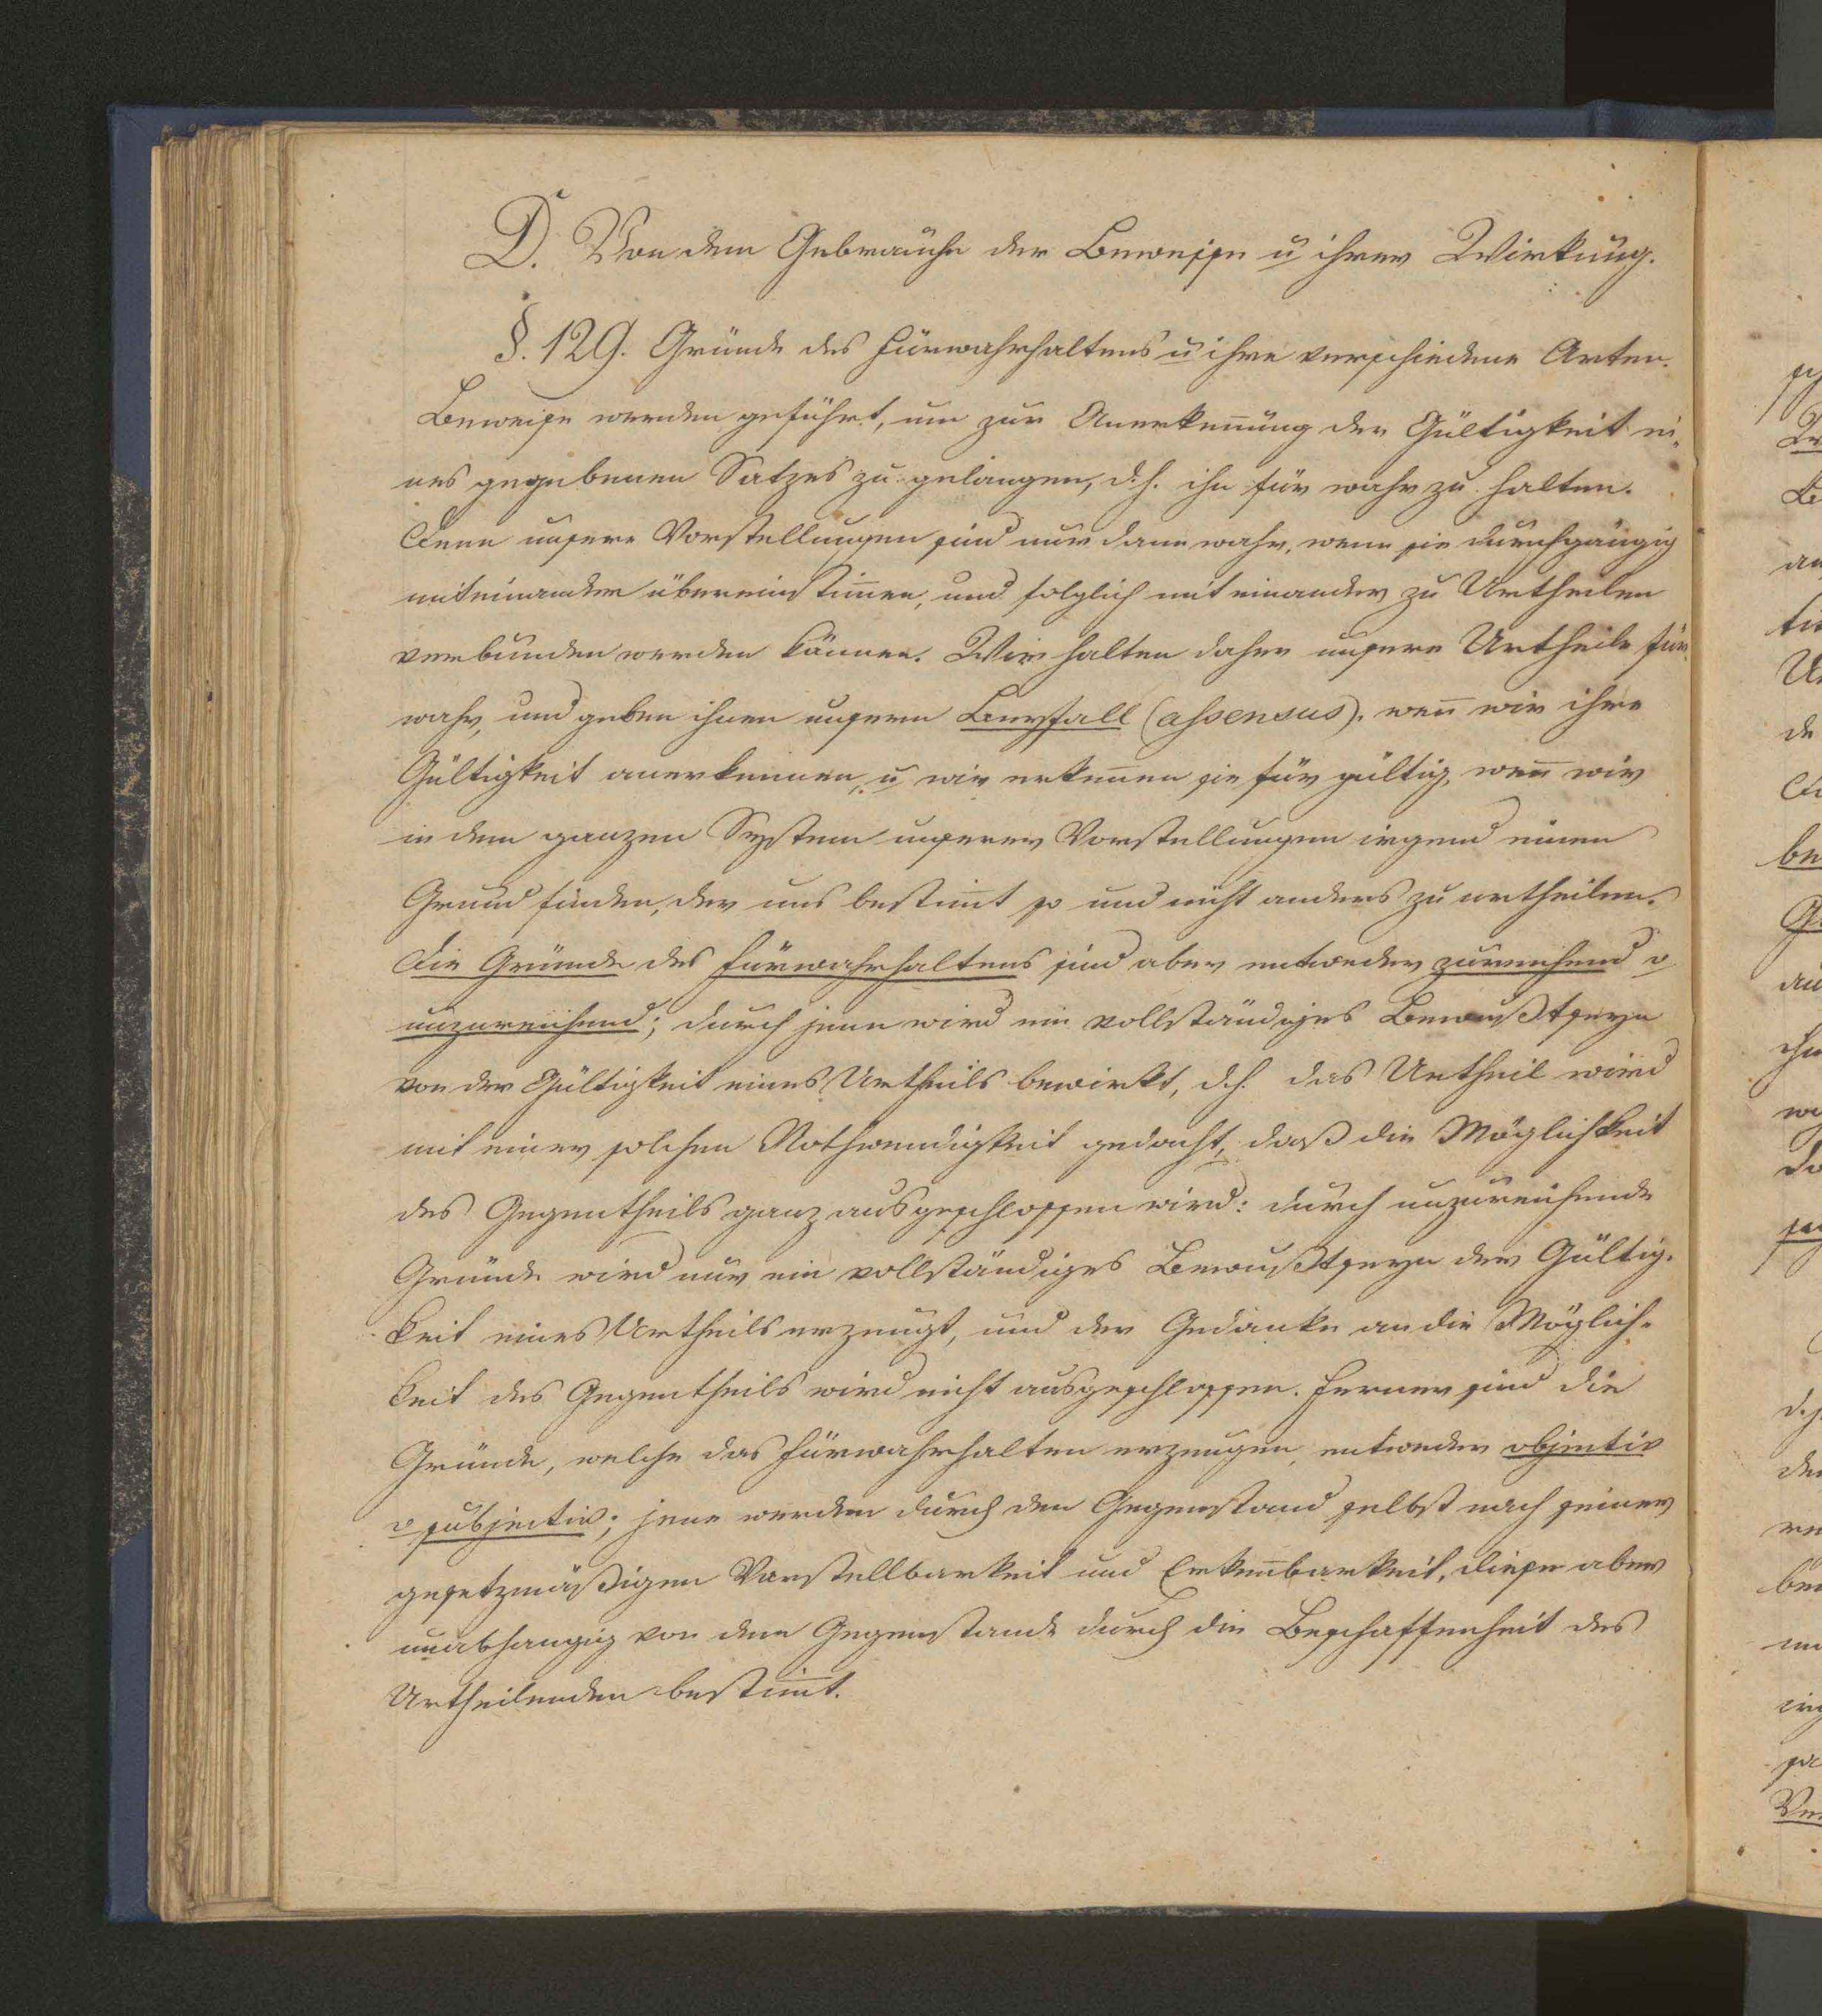 D. Von dem Gebrauche der Beweise u ihrer Wirkung.
§. 129. Gründe des Fürwahrhaltens u ihre verschiedene Arten.
Beweise werden geführt, um zur Anerkeñung der Gültigkeit ei-
nes gegebenen Satzes zu gelangen, d.h. ihn für wahr zu halten.
Denn unsere Vorstellungen sind nur dann wahr, wenn sie durchgängig
miteinander übereinstim̅en, und folglich mit einander zu Urtheilen
verbunden werden können. Wir halten daher unsere Urtheile für
wahr, und geben ihnen unsern Beyfall (assensus), weñ wir ihre
Gültigkeit anerkennen, u wir erkeñen sie für gültig, weñ wir
in dem ganzen System unserer Vorstellungen irgend einen
Grund finden, der uns bestim̅t so und nicht anders zu urtheilen.
Die Gründe des Fürwahrhaltens sind aber entweder zureichend o
unzureichend; durch jene wird ein vollständiges Bewußtseyn
von der Gültigkeit eines Urtheils bewirkt, d.h. das Urtheil wird
mit einer solchen Nothwendigkeit gedacht, daß die Möglichkeit
des Gegentheils ganz ausgeschlossen wird: durch unzureichende
Gründe wird nur ein vollständiges Bewußtseyn der Gültig-
keit eines Urtheils erzeugt, und der Gedanke an die Möglich-
keit des Gegentheils wird nicht ausgeschlossen. Ferner sind die
Gründe, welche das Fürwahrhalten erzeugen, entweder objectiv
o subjectiv; jene werden durch den Gegenstand selbst nach seiner
gesetzmäßigen Vorstellbarkeit und Erkeñbarkeit, diese aber
unabhangig von dem Gegenstande durch die Beschaffenheit des
Urtheilenden bestim̅t.